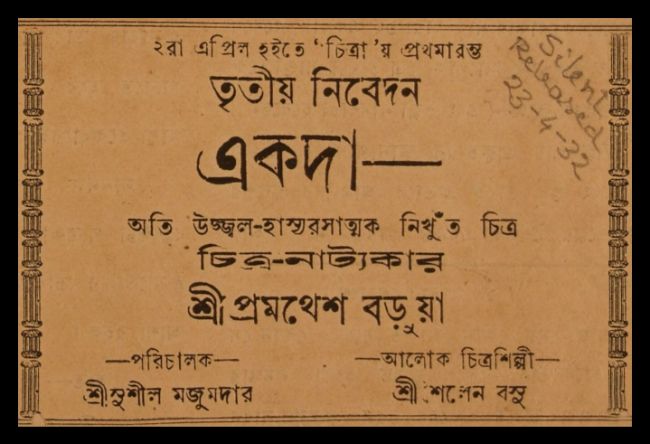 ২রা এপ্রিল হইতে ‘চিত্রা’য় প্রথমারম্ভ
তৃতীয় নিবেদন
একদা—
অতি উজ্জ্বল-হাস্যরসাত্মক নিখুঁত চিত্র
চিত্র-নাট্যকার
শ্রীপ্রমথেশ বড়ুয়া
—পরিচালক—
শ্রীসুশীল মজুমদার
—আলোক চিত্রশিল্পী—
শ্রীশৈলেন বসু
Silent
Released
23-4-32